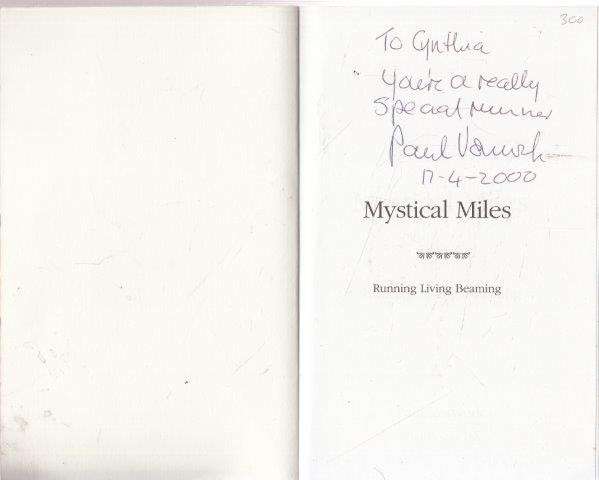 300
To Cynthia
You're a really
special runner
Paul
17-4-2000
Mystical Miles
Running Living Beaming